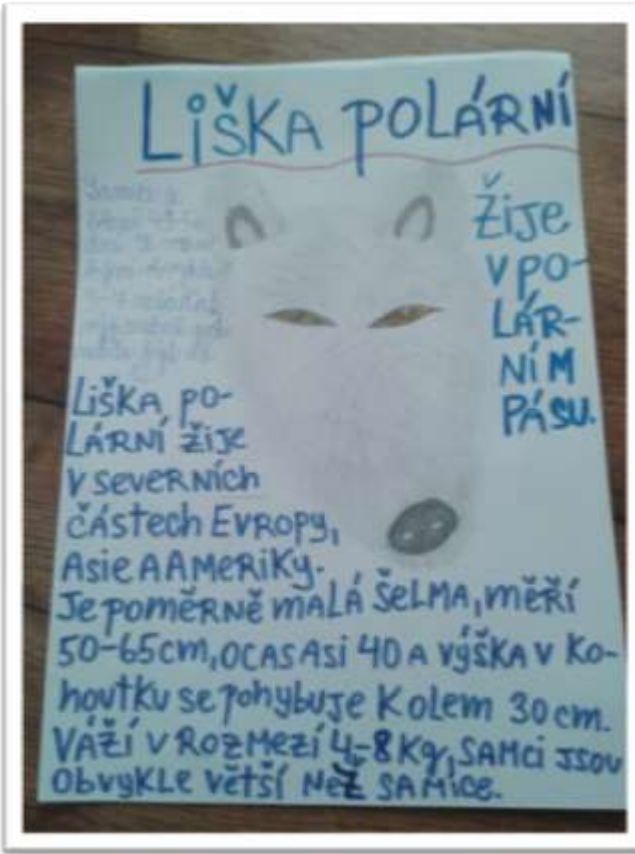 LiŠKA POLÁRNÍ
Žije
V PO-
LÁR-
NÍM
PÁSU.
LiŠKA PO-
LÁRNÍ žije
V SEVERNÍch
částech EVROPY,
Asie A AMERiKy.
Je poměrně mALÁ ŠeLMA, měří
50-65cm, OCAS Asi 40 A výška v Ko-
houtku se pohybuje Kolem 30 cm.
VÁŽÍ V ROZMEZÍ 4-8 Kg, SAMci JSOU
ObvyKLe větší Než SAMice.